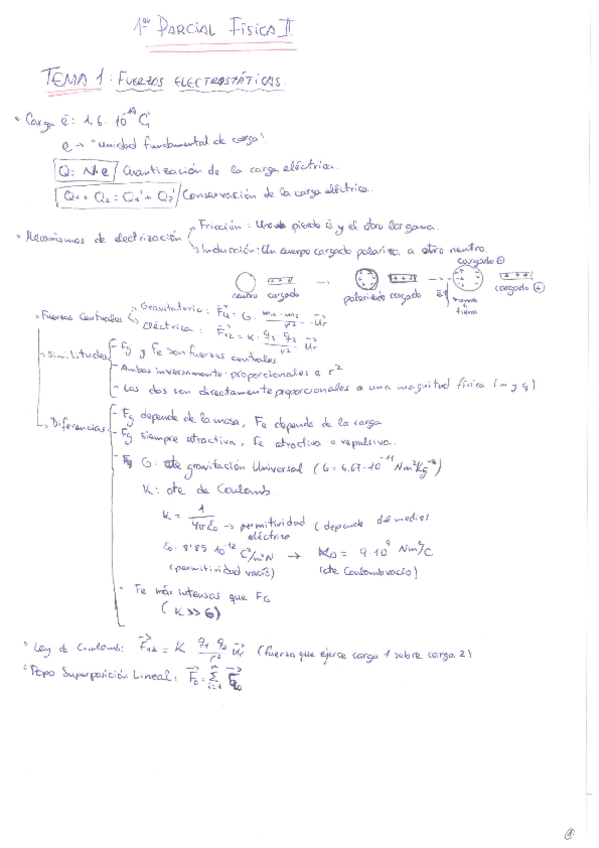 1er PARCIAL FÍSICA II
TEMA 1: FUERZAS ELECTROSTÁTICAS.
Carga ē: 1,6 · 10^-19 C
e → "unidad fundamental de carga".
Q: N·e / Cuantización de la carga eléctrica.
Q1 + Q2 = Q1' + Q2' / Conservación de la carga eléctrica.
Mecanismos de electrización
Fricción: Uno pierde ē y el otro los gana.
Inducción: Un cuerpo cargado polariza a otro neutro.
cargado ⊖
neutro cargado → polarizado cargado ē toma a tierra cargado ⊕
Fuerzas Centrales
Gravitatoria: F12 = G · m1 · m2 / r² · ur
Eléctrica: F12 = K · q1 · q2 / r² ur
Similitudes
- Fg y Fe son fuerzas centrales
- Ambas inversamente proporcionales a r²
- Las dos son directamente proporcionales a una magnitud física (m y q)
Diferencias
- Fg depende de la masa, Fe depende de la carga
- Fg siempre atractiva, Fe atractiva o repulsiva.
- G: cte gravitación Universal (G = 6,67 · 10^-11 Nm²/Kg^-2)
K: cte de Coulomb.
K = 1 / 4πε0 → permitividad eléctrica (depende del medio)
ε0 = 8'85 10^-12 C²/m²N → K0 = 9·10^9 Nm²/C
(permitividad vacío) (cte Coulomb vacío)
- Fe más intensas que FG
(K >> G)
Ley de Coulomb: F12 = K · q1 · q2 / r² ur (fuerza que ejerce carga 1 sobre carga 2)
Ppo Superposición Lineal: F0 = Σ i=1 n Fi0
1